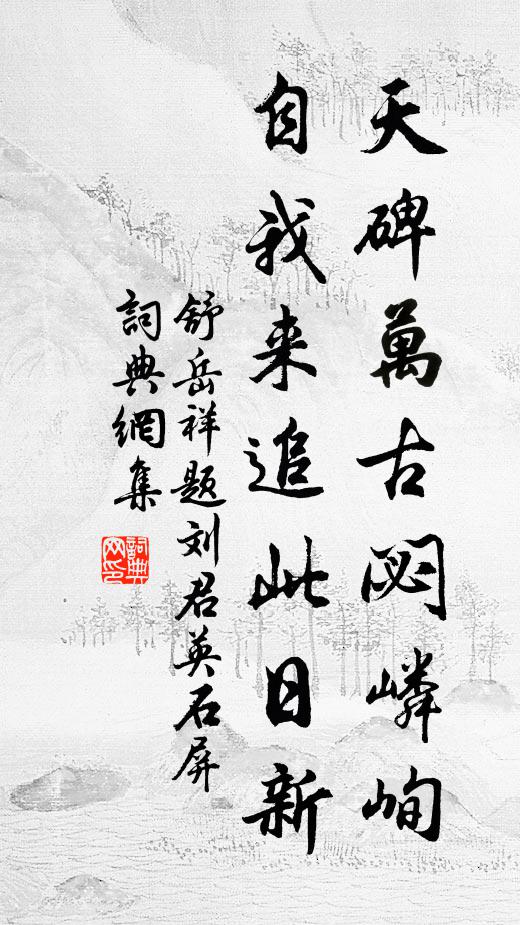 天碑萬古閟嶙峋
自我来追此日新
舒岳祥题刘君英石屏
詞典網集
詞典网印